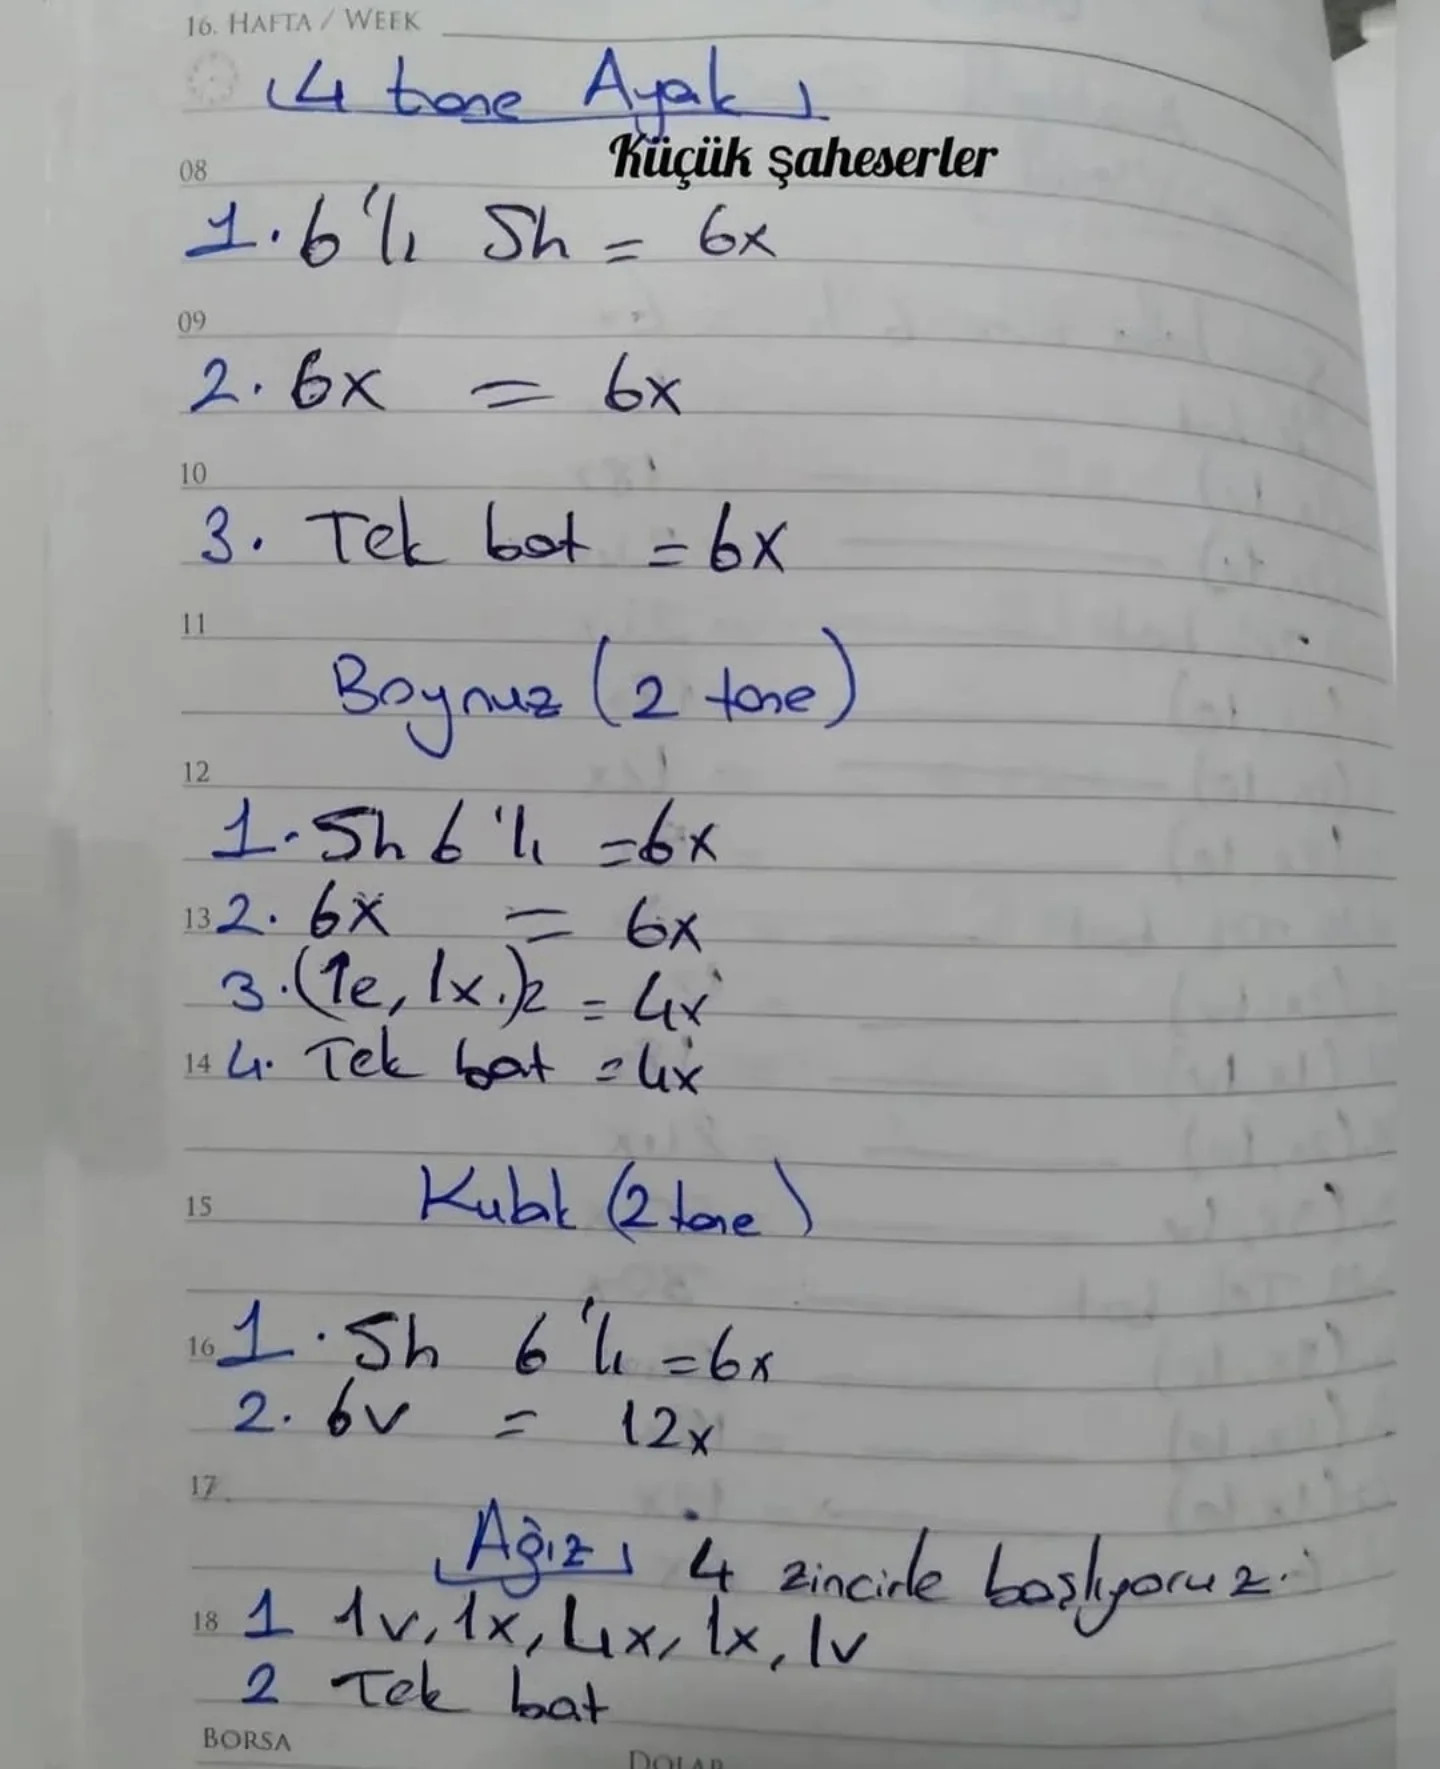 16. HAFTA / WEEK
4 tane Ayak
Küçük şaheserler
08
1. 6'lı Sh = 6x
09
2. 6x = 6x
10
3. Tek bat = 6x
11
Boynuz (2 tane)
12
1. Sh 6'lı = 6x
13 2. 6x = 6x
3. (1e, 1x.)2 = 4x
14 4. Tek bat = 4x
15 Kulak (2 tane)
16 1. Sh 6'lı = 6x
2. 6v = 12x
17
Ağız 4 zincirle başlıyoruz.
18 1 1v, 1x, 4x, 1x, 1v
2 Tek bat
BORSA
DOLAR